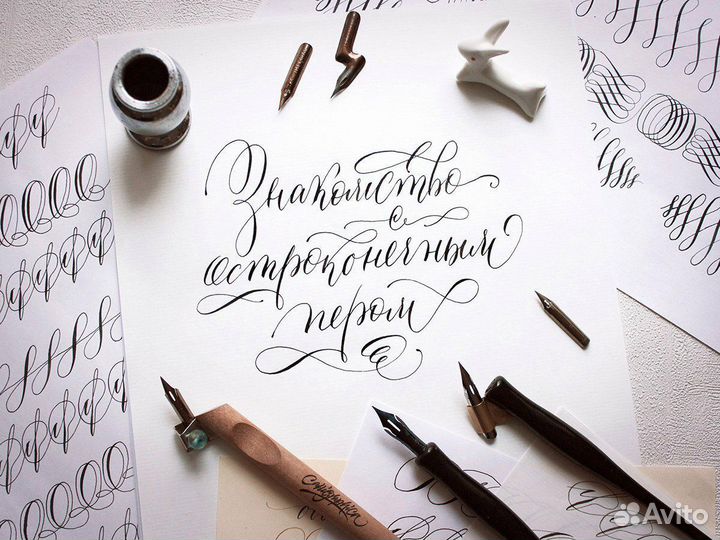 Знакомство
с
остроконечным
пером
Calligraphica
Avito